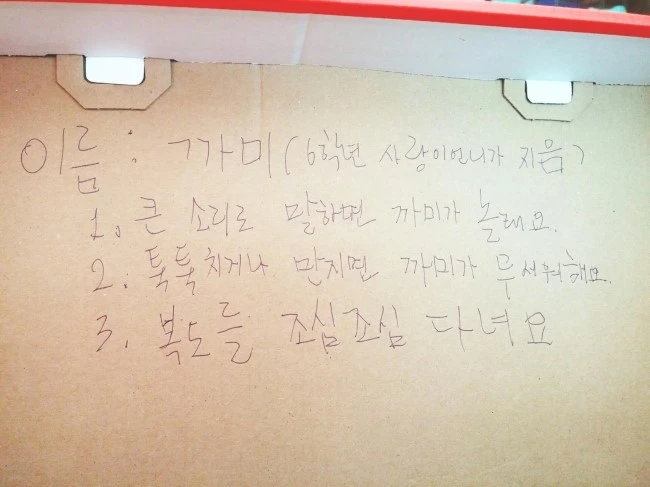 이름 : 까미 (6학년 사랑이언니가 지음)
1. 큰 소리로 말하면 까미가 놀래요.
2. 툭툭 치거나 만지면 까미가 무서워해요.
3. 복도를 조심조심 다녀요